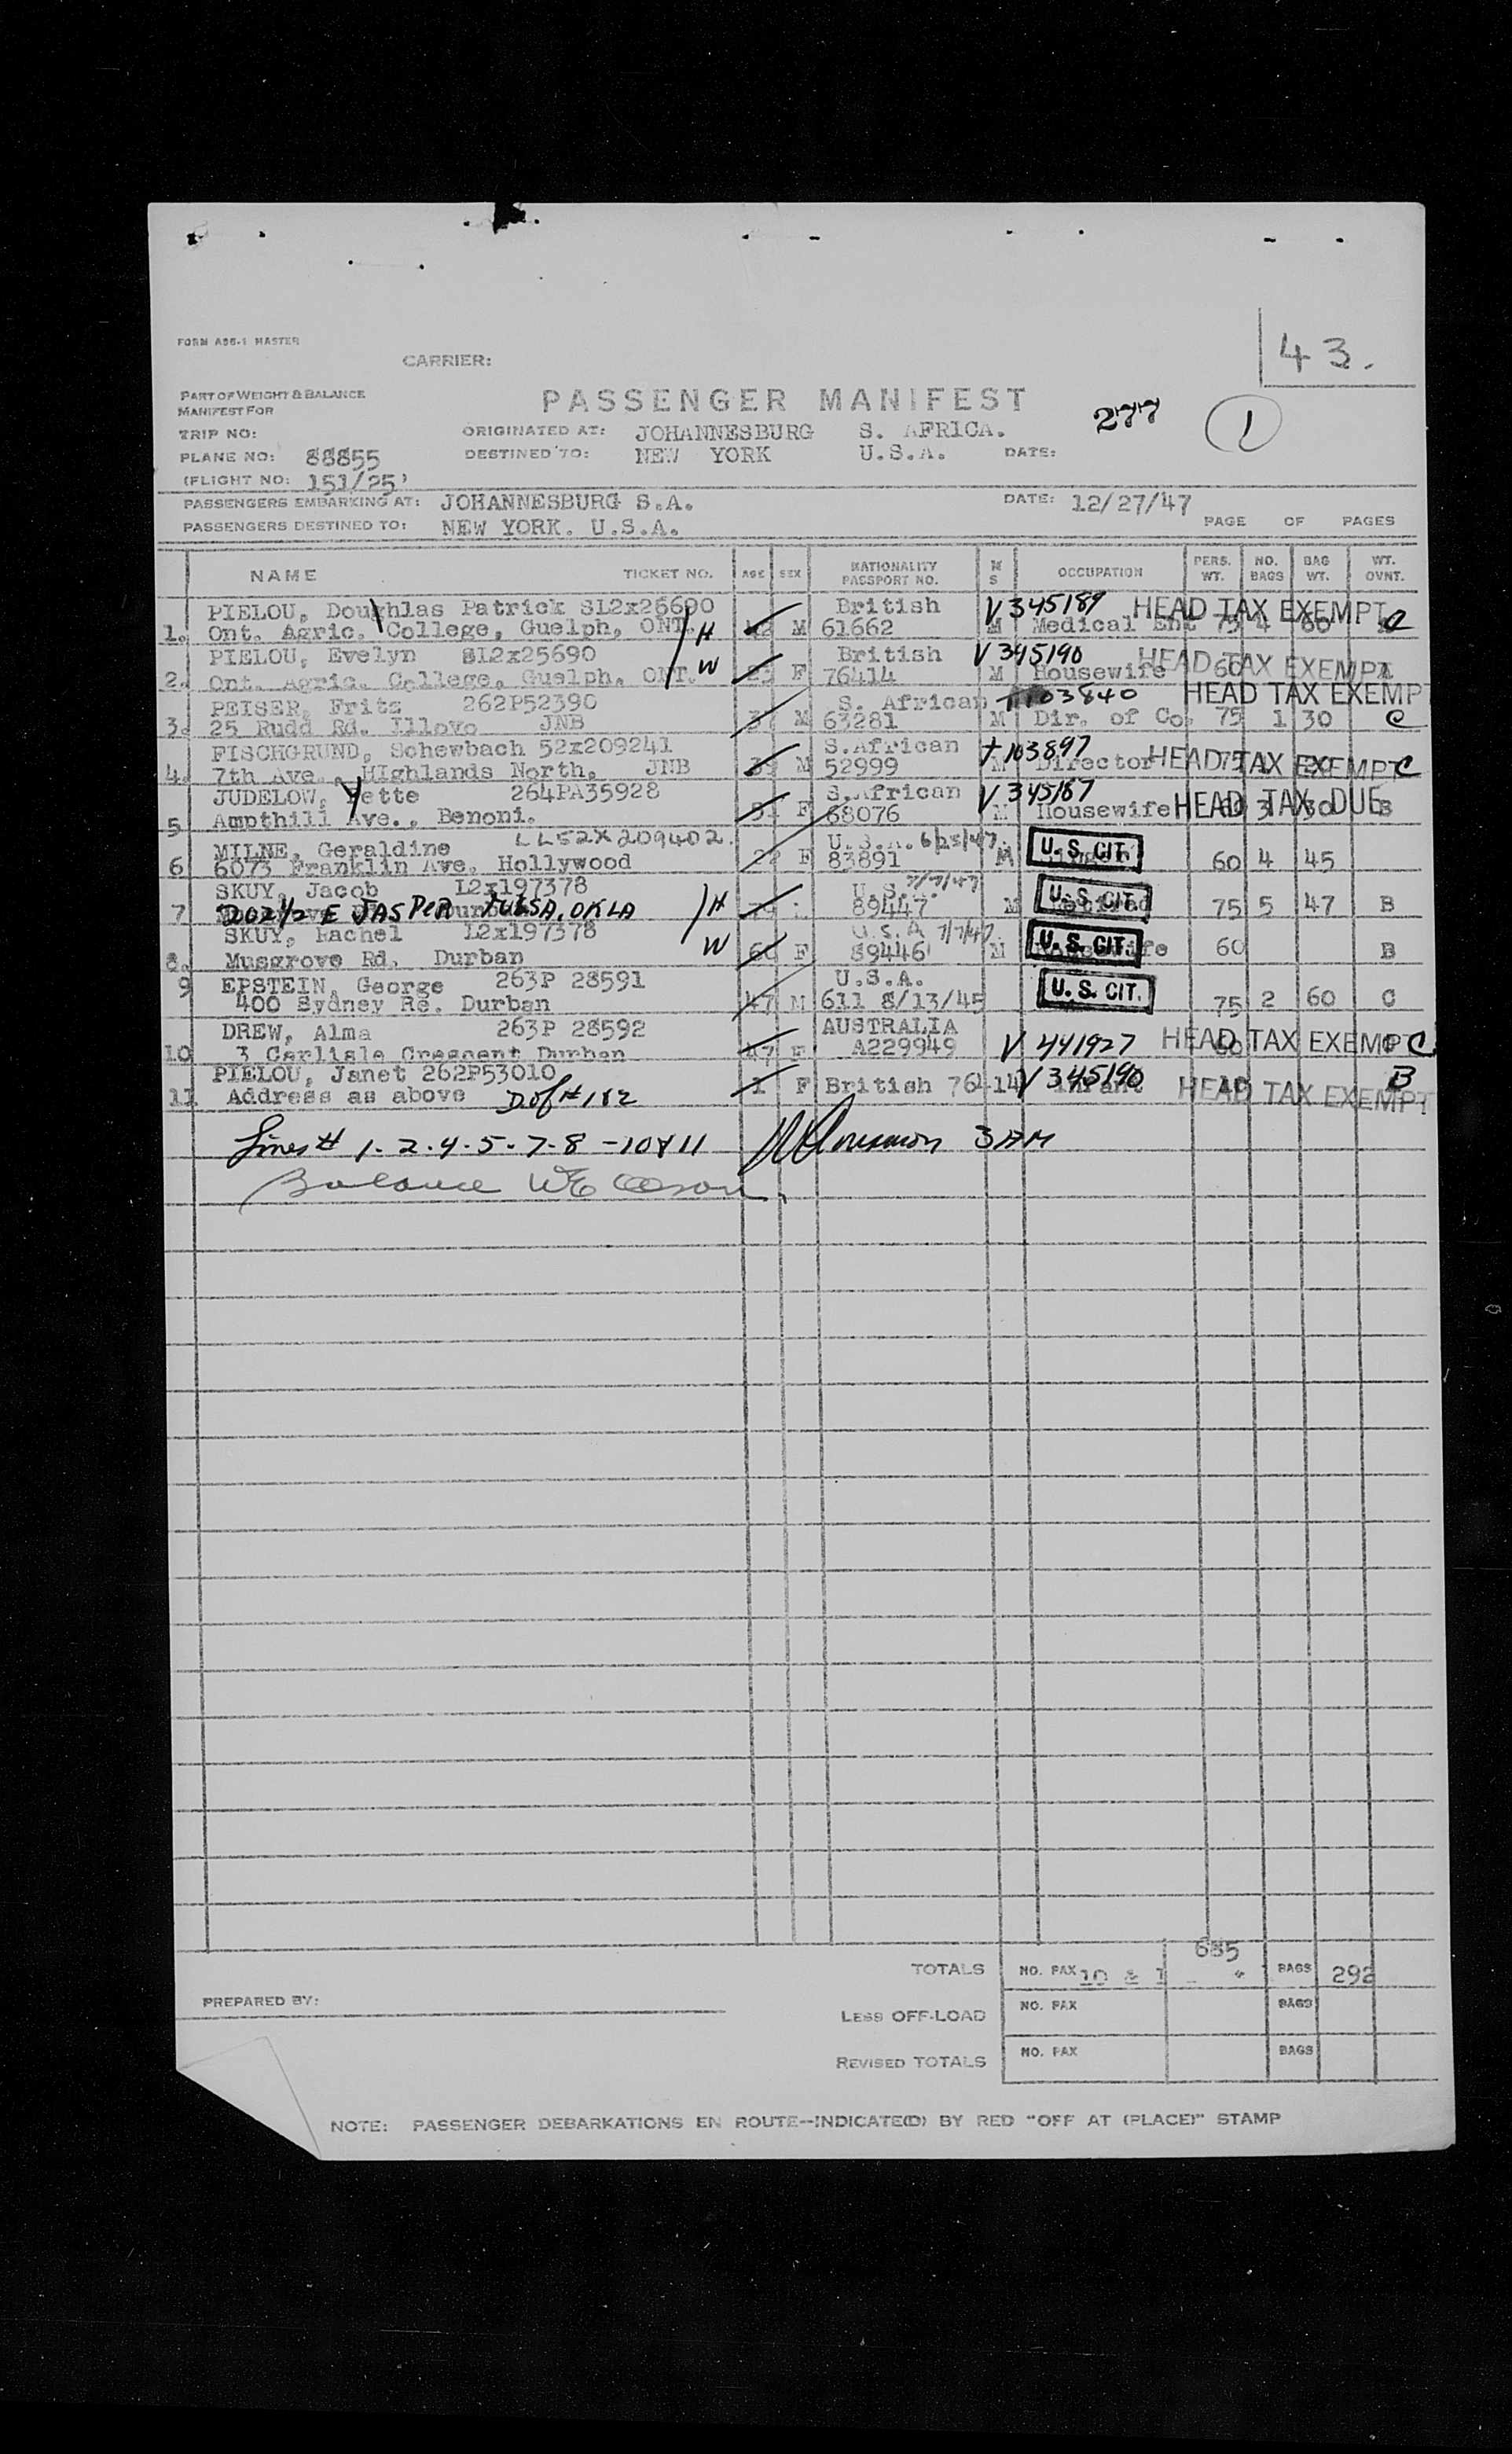 43.
FORM A86-1 MASTER
CARRIER:
PART OF WEIGHT & BALANCE
MANIFEST FOR
PASSENGER MANIFEST
277
1
TRIP NO:
ORIGINATED AT: JOHANNESBURG S. AFRICA.
PLANE NO: 88855
DESTINED TO: NEW YORK U.S.A. DATE:
(FLIGHT NO: 151/25)
PASSENGERS EMBARKING AT: JOHANNESBURG S.A. DATE: 12/27/47
PASSENGERS DESTINED TO: NEW YORK. U.S.A. PAGE OF PAGES
NAME TICKET NO. AGE SEX NATIONALITY PASSPORT NO. M S OCCUPATION PERS. WT. NO. BAGS BAG WT. WT. OVNT.
PIELOU, Doughlas Patrick SL2x25690 British V345189 HEAD TAX EXEMPT
1. Ont. Agric. College, Guelph, ONT. H M 61662 M Medical Ent 75 4 60 C
PIELOU, Evelyn SL2x25690 British V345190 HEAD TAX EXEMPT
2. Ont. Agric. College, Guelph, ONT. W F 76414 M Housewife 60
PEISER, Fritz 262P52390 S. African 103840 HEAD TAX EXEMP
3. 25 Rudd Rd. Illovo JNB 37 M 63281 M Dir. of Co. 75 1 30 C
FISCHGRUND, Schewbach 52x209241 S.African T103897 HEAD TAX EXEMPT
4. 7th Ave., HIghlands North, JNB M 52999 M Director 75 C
JUDELOW, Yette 264PA35928 S.African V345187 HEAD TAX DUE
5 Ampthill Ave., Benoni. F 68076 M Housewife 60 3 30 B
MILNE, Geraldine LL52X209402. U.S.A. 6/25/47
6 6073 Franklin Ave. Hollywood 22 F 83891 M U. S. CIT. 60 4 45
SKUY, Jacob L2x197378 U.S. 7/7/47
7 202 1/2 E JASPER TULSA, OKLA H 89447 M U. S. CIT. 75 5 47 B
SKUY, Rachel L2x197378 U.S.A 7/7/47
8. Musgrove Rd. Durban W 60 F 89446 M U. S. CIT. 60 B
9 EPSTEIN, George 263P 28591 U.S.A.
400 Sydney Re. Durban 47 M 611 8/13/45 U. S. CIT. 75 2 60 C
DREW, Alma 263P 28592 AUSTRALIA
10 3 Carlisle Crescent Durban 47 F A229949 V 441927 60 HEAD TAX EXEMPT C
PIELOU, Janet 262P53010 B
11 Address as above D of # 182 1 F British 76414 V345190 Infant HEAD TAX EXEMPT
Lines # 1-2-4-5-7-8-10 & 11 3 AM
Balance
TOTALS NO. PAX 10 & 1 685 BAGS 292
PREPARED BY:
LESS OFF-LOAD NO. PAX BAGS
REVISED TOTALS NO. PAX BAGS
NOTE: PASSENGER DEBARKATIONS EN ROUTE--INDICATE(D) BY RED "OFF AT (PLACE)" STAMP